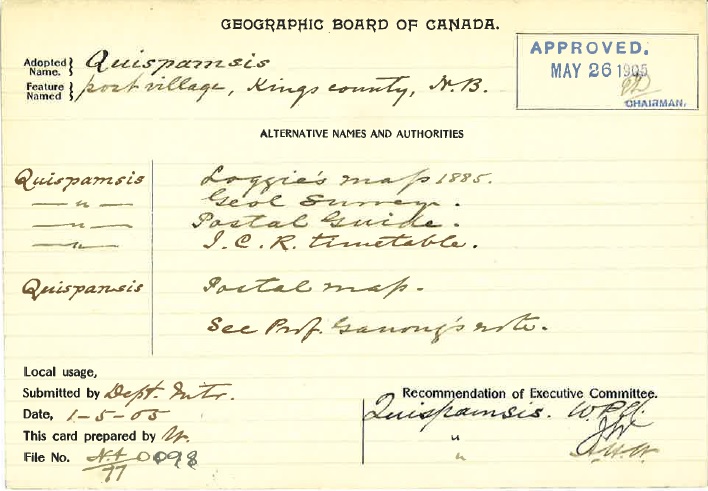 GEOGRAPHIC BOARD OF CANADA.
Adopted Name. } Quispamsis
Feature Named } post village, Kings county, N.B.
APPROVED.
MAY 26 1905
CHAIRMAN.
ALTERNATIVE NAMES AND AUTHORITIES
Quispamsis Loggie's map 1885.
— " — Geol Survey.
— " — Postal Guide.
— " — I.C.R. timetable.
Quispamsis Postal map.
See Prof. Ganong's note.
Local usage,
Submitted by Dept. Intr.
Date, 1-5-05
This card prepared by W.
File No. 0098
Recommendation of Executive Committee.
Quispamsis.
"
"